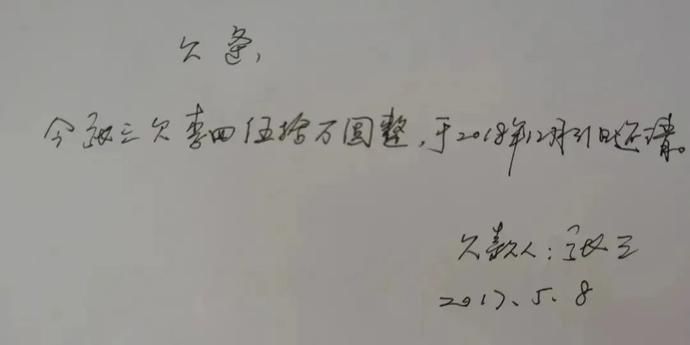 欠条,
今张三欠李四伍拾万圆整,于2018年12月31日还清。
欠款人:张三
2017.5.8